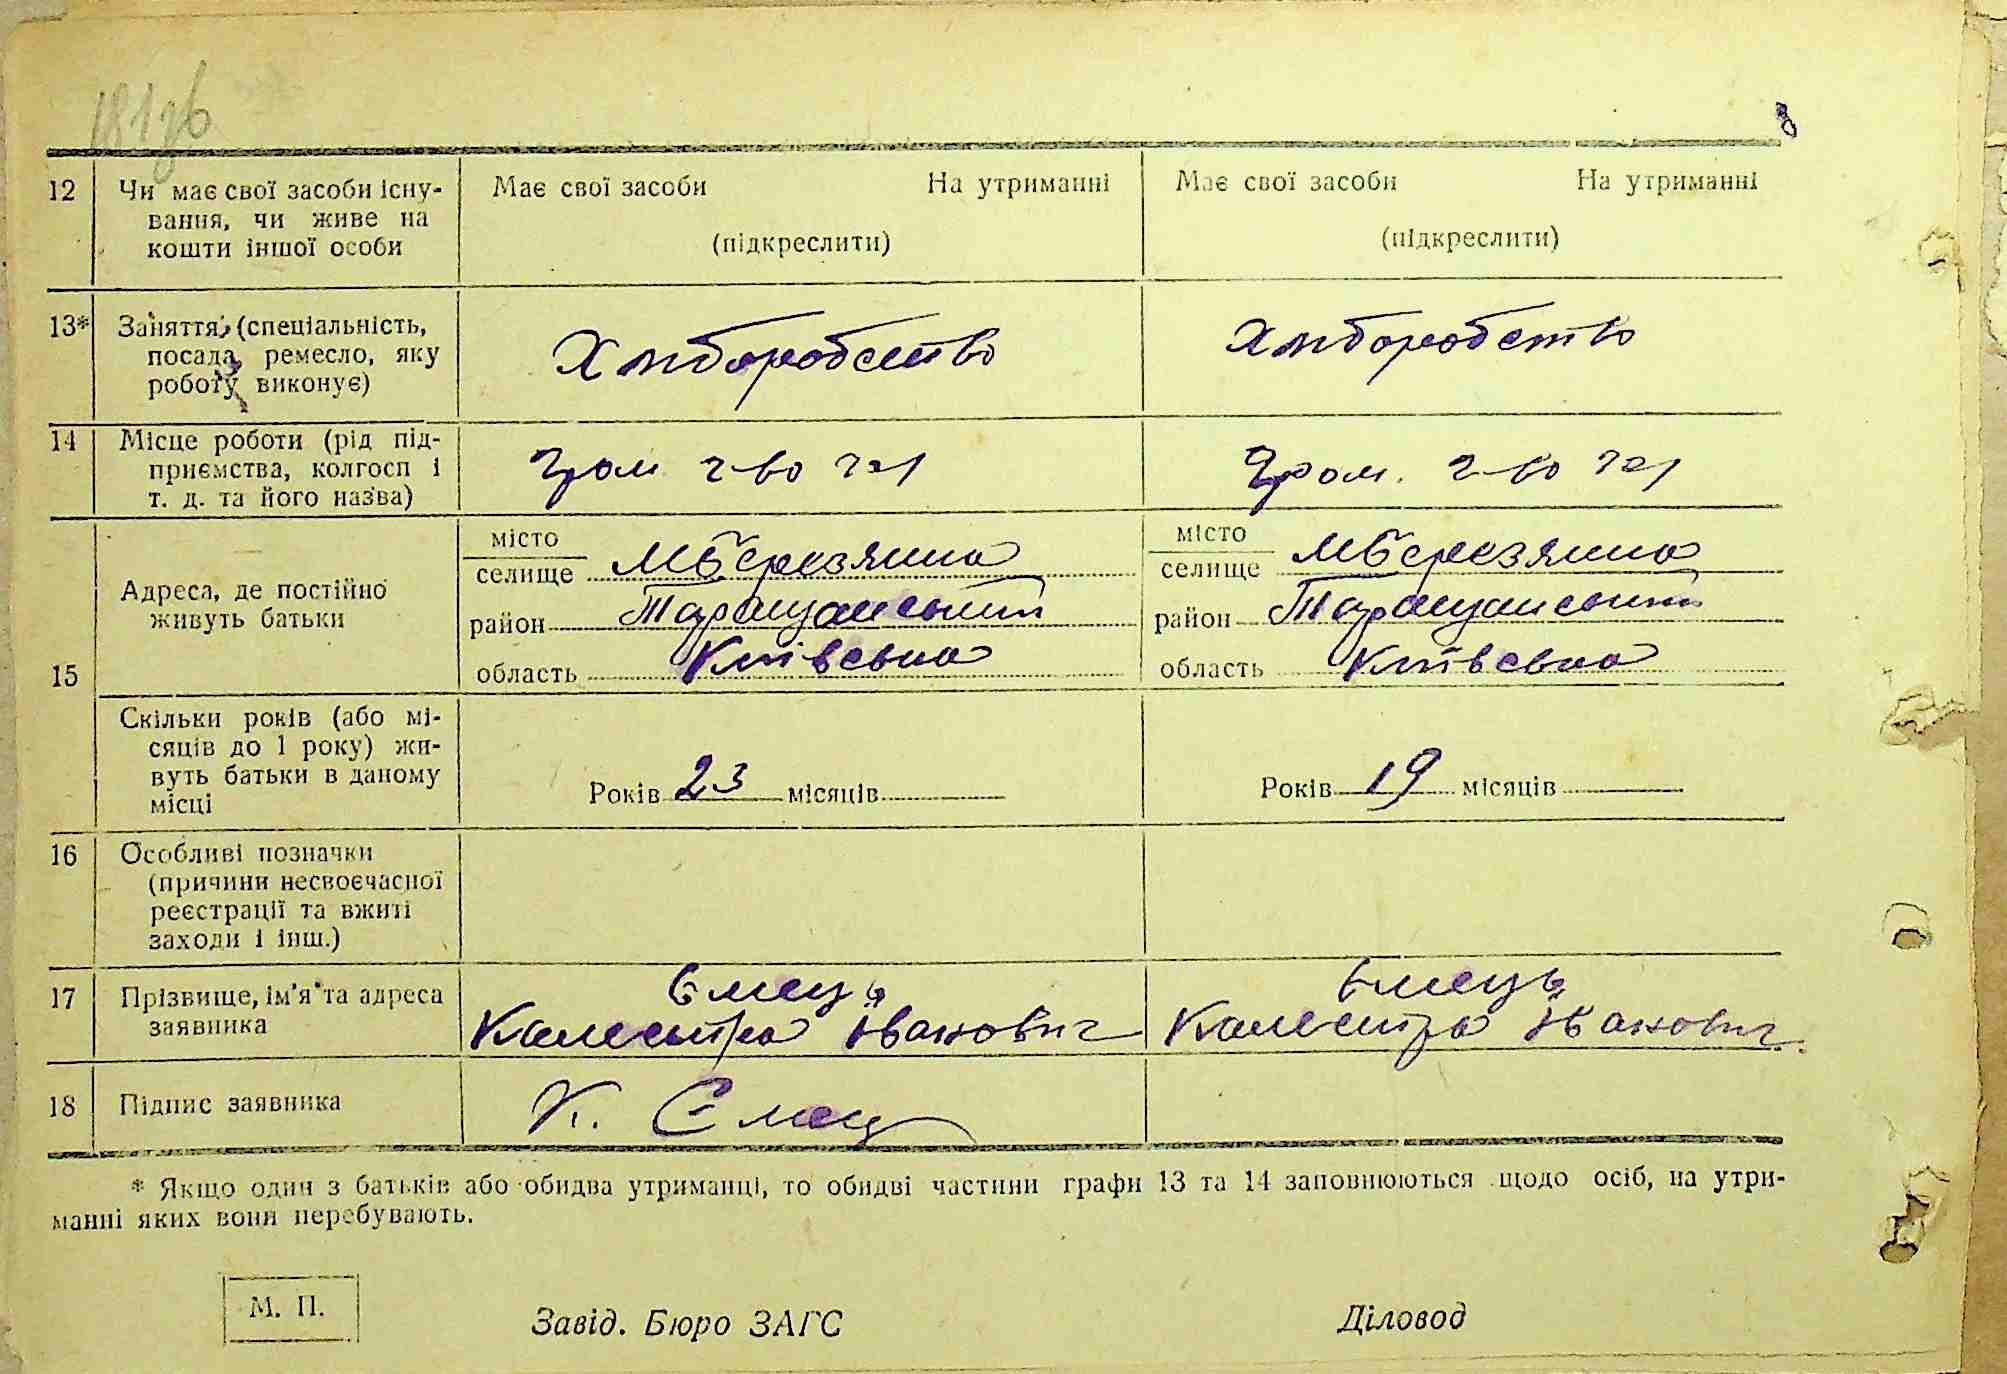 181зв
12 Чи має свої засоби існу- Має свої засоби На утриманні Має свої засоби На утриманні
вання, чи живе на
кошти іншої особи (підкреслити) (підкреслити)
13* Заняття, (спеціальність,
посада, ремесло, яку Хліборобство Хліборобство
роботу виконує)
14 Місце роботи (рід під-
приємства, колгосп і Гром. г-во Гром. г-во
т. д. та його назва)
15 місто місто
селище МБерезянка селище МБерезянка
Адреса, де постійно
живуть батьки район Таращанський район Таращанський
область Київська область Київська
Скільки років (або мі-
сяців до 1 року) жи-
вуть батьки в даному Років 23 місяців Років 19 місяців
місці
16 Особливі позначки
(причини несвоєчасної
реєстрації та вжиті
заходи і інш.)
17 Прізвище, ім'я та адреса Ємець Ємець
заявника Калистра Іванович Калистра Іванович
18 Підпис заявника К. Ємец
* Якщо один з батьків або обидва утриманці, то обидві частини графи 13 та 14 заповнюються щодо осіб, на утри-
манні яких вони перебувають.
М. П.
Завід. Бюро ЗАГС Діловод